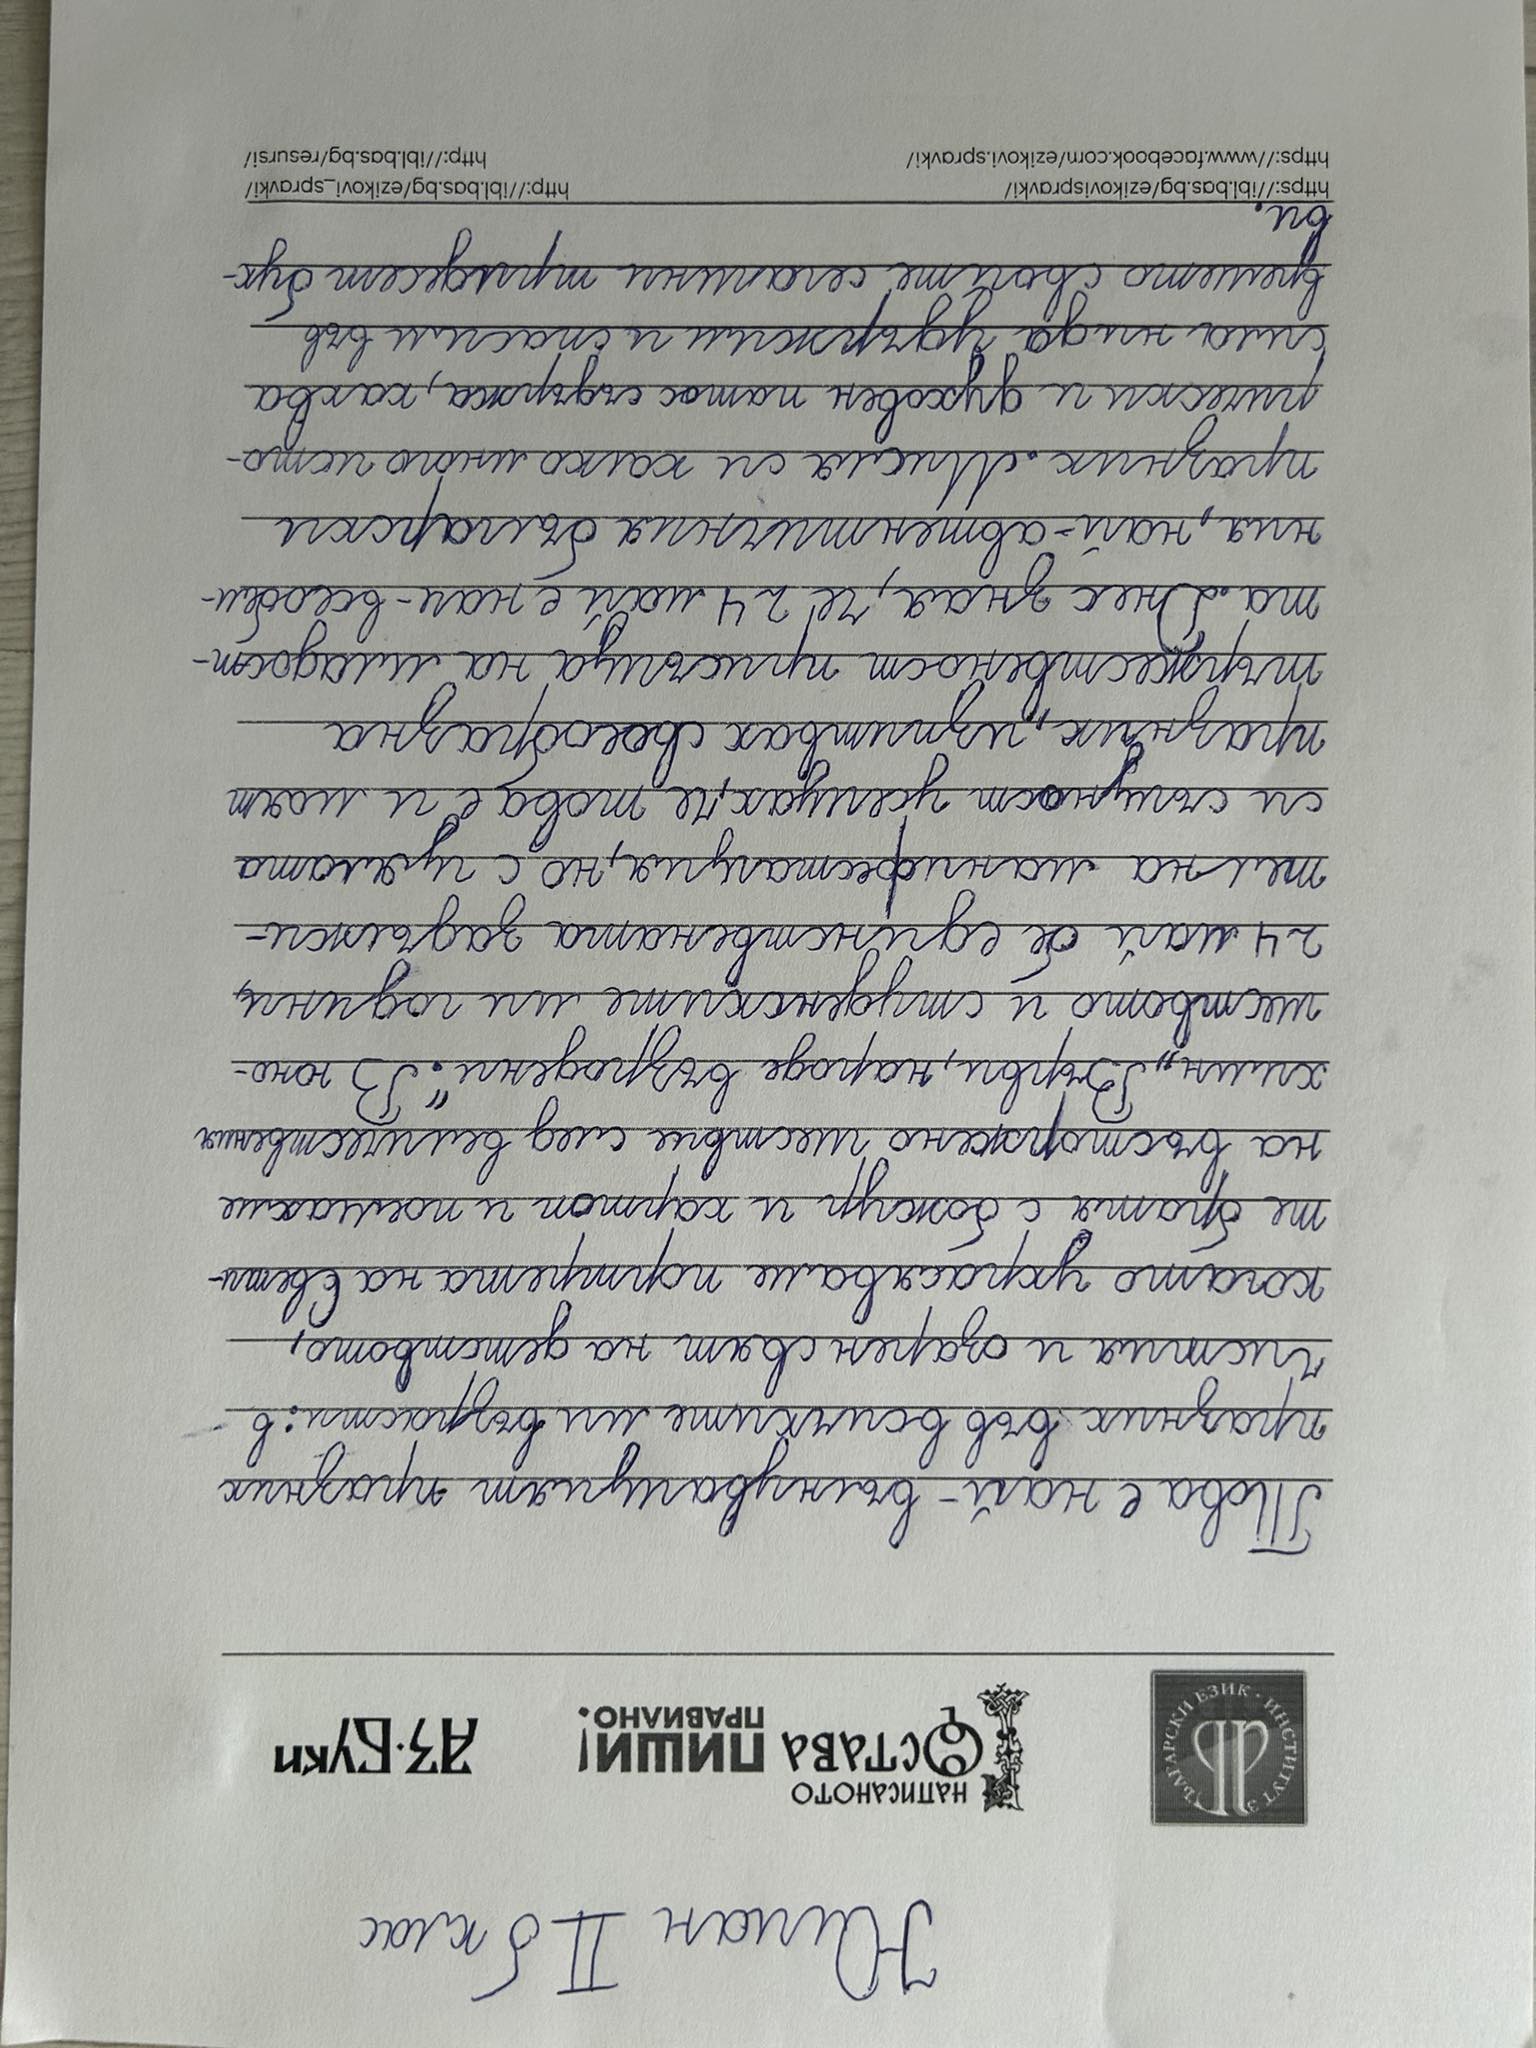 Юлиан II б клас
БЪЛГАРСКИ ЕЗИК · ИНСТИТУТ З
НАПИСАНОТО
ОСТАВА ПИШИ!
ПРАВИЛНО.
АЗ·БУКИ
Това е най-вълнуващият празник
празник във всичките ми възрасти: в
чистия и озарен свят на детството,
когато украсявахме портрета на Свети-
те братя с божур и картон и поемахме
на въсторжено шествие след величествения
химн „Върви, народе възродени". В юно-
шеството и студенските ми години,
24 май бе единствената задължи-
телна манифестация, но с цялата
си същност усещах, че това е и моят
празник, изпитвах своеобразна
тържественост присъща на младост-
та. Днес зная, че 24 май е най-всеобщи-
ния, най-автентичния български
празник. Мисля си колко много исто-
рически и духовен патос съдържа, каква
сила ни да удържим и спасим във
времето своите сегашни трийдесет бук-
ви.
https://ibl.bas.bg/ezikovispravki/ http://ibl.bas.bg/ezikovi_spravki/
https://www.facebook.com/ezikovi.spravki/ http://ibl.bas.bg/resursi/